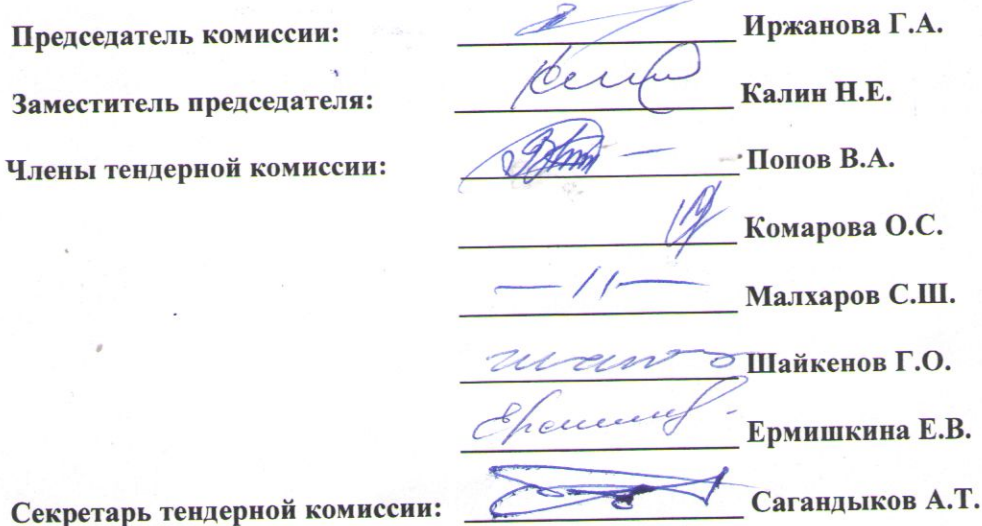 Председатель комиссии: Иржанова Г.А.
Заместитель председателя: Калин Н.Е.
Члены тендерной комиссии: Попов В.А.
Комарова О.С.
— // — Малхаров С.Ш.
Шайкенов Г.О.
Ермишкина Е.В.
Секретарь тендерной комиссии: Сагандыков А.Т.